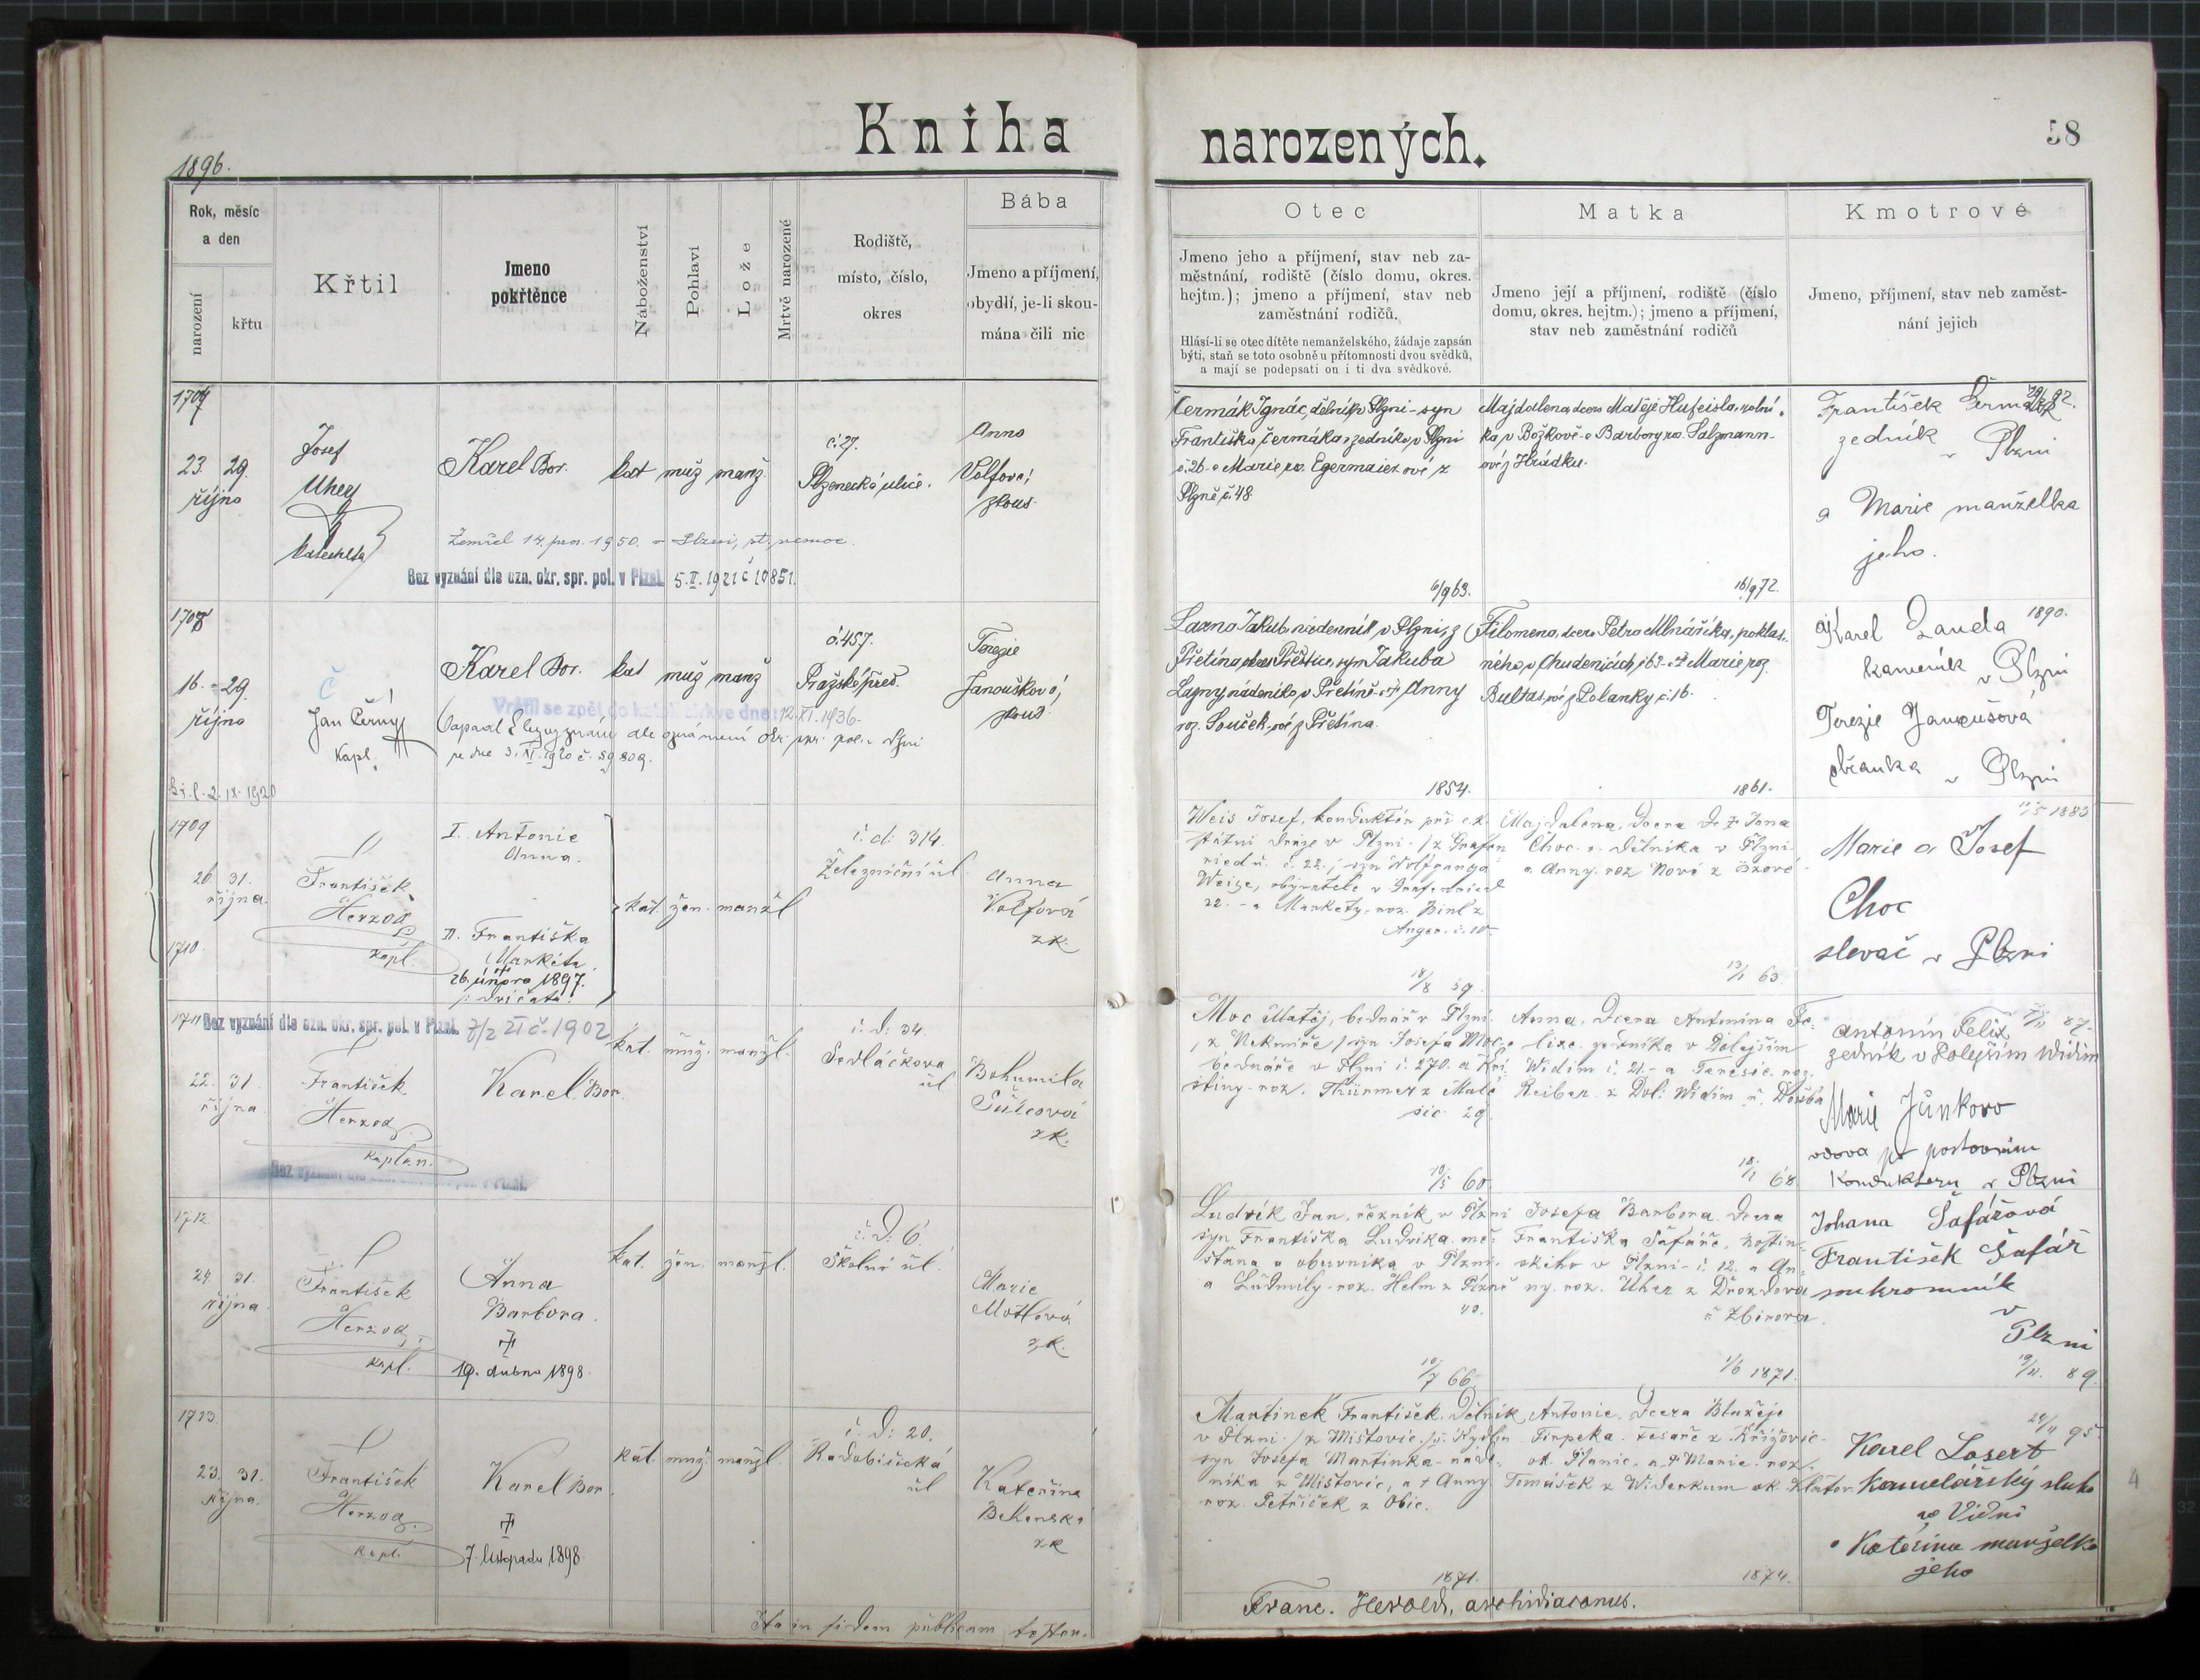 Kniha
narozených.
58
1896.
Rok, měsíc
a den
narození
křtu
Křtil
Jmeno
pokřtěnce
Náboženství
Pohlaví
Lože
Mrtvě narozené
Rodiště,
místo, číslo,
okres
Bába
Jmeno a příjmení,
obydlí, je-li skou-
mána čili nic
Otec
Jmeno jeho a příjmení, stav neb za-
městnání, rodiště (číslo domu, okres.
hejtm.); jmeno a příjmení, stav neb
zaměstnání rodičů.
Hlásí-li se otec dítěte nemanželského, žádaje zapsán
býti, staň se toto osobně u přítomnosti dvou svědků,
a mají se podepsati on i ti dva svědkové.
Matka
Jmeno její a příjmení, rodiště (číslo
domu, okres. hejtm.); jmeno a příjmení,
stav neb zaměstnání rodičů
Kmotrové
Jmeno, příjmení, stav neb zaměst-
nání jejich
1707
23. 29.
října
Josef
Uher
katecheta
Karel Bor.
kat muž manž
č. 27.
Plzenecká ulice.
Anna
Volfová
zkouš.
Zemřel 14. pros. 1950. v Plzni, st. nemoc.
Bez vyznání dle ozn. okr. spr. pol. v Plzni. 5. II. 1921 č 10851.
Čermák Ignác, dělník v Plzni - syn
Františka Čermáka, zedníka v Plzni
č. 26. a Marie roz. Egermaierové z
Plzně č. 48.
6/9 63.
Majdalena, dcera Matěje Hufeisla, rolní-
ka v Božkově a Barbory roz. Salzmann-
ové z Hrádku.
16/9 72.
František Čermák
zedník
v Plzni
a Marie manželka
jeho.
1708
16. - 29.
října
Jan Černý
Kapl.
Karel Bor.
kat muž manž
č. 457.
Pražské před.
Terezie
Janoušková,
zkouš.
Vrátil se zpět do katol. církve dne: 12. XI. 1936.
ze dne 3. XI. 1920 č. 59809.
2. IX. 1920
Lazna Jakub, nádenník v Plzni, z
Přetína okres Přeštice, syn Jakuba
Lazny, nádeníka v Přetíně a † Anny
roz. Souček-ové z Přetína.
1854.
Filomena, dcera Petra Mlnáříka, poklas-
ného v Chudenicích č. 63 a † Marie roz.
Bultas-ové z Polanky č. 16.
1861.
Karel Landa 1890.
kameník v Plzni
Terezie Janoušová
občanka v Plzni
1709
26. 31.
října.
1710.
František
Herzog
kapl.
I. Antonie
Anna.
II. Františka
Markéta
26. února 1897.
/: dvojčata:/
kat. žen. manžl
č. d. 314.
Železniční ul.
Anna
Volfová
zk.
Weis Josef, konduktér při c. k.
státní dráze v Plzni /z Grafen
ried č. 22./, syn Wolfganga
Weise, obyvatele v Grafenried
22. - a Markéty, roz. Binl z
Anger. č. 10.
18/8 59.
Majdalena, dcera † Jana
Choc. - dělníka v Plzni
a Anny roz Nové z
13/1 63.
Marie a Josef
Choc
slevač v Plzni
1711
Bez vyznání dle ozn. okr. spr. pol. v Plzni. 7/2 21 č. 1902
22. 31.
října
František
Herzog.
kaplan.
Karel Bor.
kat. muž. manžl.
č. d. 34.
Sedláčkova
ul
Bohumila
Šulcová
zk.
Moc Matěj, bednář v Plzni
/z Nekmíře/ syn Josefa Moce
bednáře v Plzni č. 270. a Kri-
stiny roz. Thürmer z Male-
sic 29.
10/5 60.
Anna, dcera Antonína Fe-
lixe, zedníka v Dolejším
Widim č. 21. - a Terezie roz.
Reiber z Dol: Widim n. Doubá
18/1 68.
Antonín Felix
zedník v Dolejším Widim
Marie Junkova
vdova po poštovním
Konduktéru v Plzni
1712.
24. 31.
října.
František
Herzog
kapl.
Anna
Barbora.
†
19. dubna 1898.
kat. žen. manžl.
č. d. 6.
Školní ul.
Marie
Motlová
zk.
Ludvík Jan, řezník v Plzni
syn Františka Ludvíka mě-
šťana a obuvníka v Plzni
a Ludmily roz. Helm z Plzně
40.
10/7 66.
Josefa Barbora, dcera
Františka Šafáře, hostin-
ského v Plzni č. 12. a An-
ny roz. Uher z Drozdova
n Zbirova.
1/6 1871.
Johana Šafářová
František Šafář
soukromník
v
Plzni
1713.
23. 31.
října.
František
Herzog.
kapl.
Karel Bor.
†
7. listopadu 1898.
kat. muž. manžl.
č. d: 20.
Radobičická
ul
Kateřina
Behenská
zk
Martinek František, dělník
v Plzni /z Mištovic
syn Josefa Martinka - náde-
níka z Mištovic, a † Anny
roz. Petříček z Obic.
1871.
Antonie, dcera Blažeje
Tirpeka, tesaře z Křížovic
ok Planic. a † Marie roz.
Tomášek z Widerkum ok. Klatov.
1874.
Karel Losert
Kancelářský sluha
ve Vídni
a Kateřina manželka
jeho
Ita in fidem publicam testor.
Franc. Herold, archidiaconus.
4